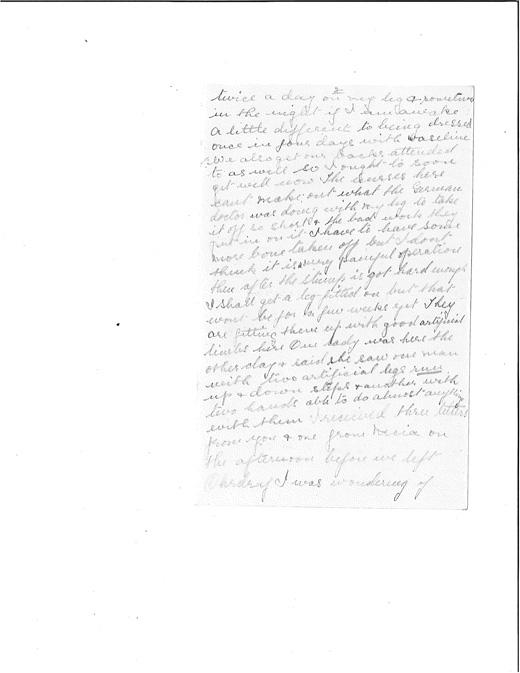 twice a day on my leg & sometimes
in the night if I am awake
A little different to being dressed
once in four days with vaseline
We also get our backs attended
to as well so I ought to soon
get well now The nurses here
cant make out what the German
doctor was doing with my leg to take
it off so short & the bad work they
put in on it I have to have some
more bone taken off but I dont
think it is a very painful operation
then after the stump is got hard enough
I shall get a leg fitted on but that
wont be for a few weeks yet They
are fitting them up with good artificial
limbs here One lady was here the
other day & said she saw one man
with two artificial legs run
up & down steps & another with
two hands able to do almost anything
with them I received three letters
from you & one from on
the afternoon before we left
I was wondering if